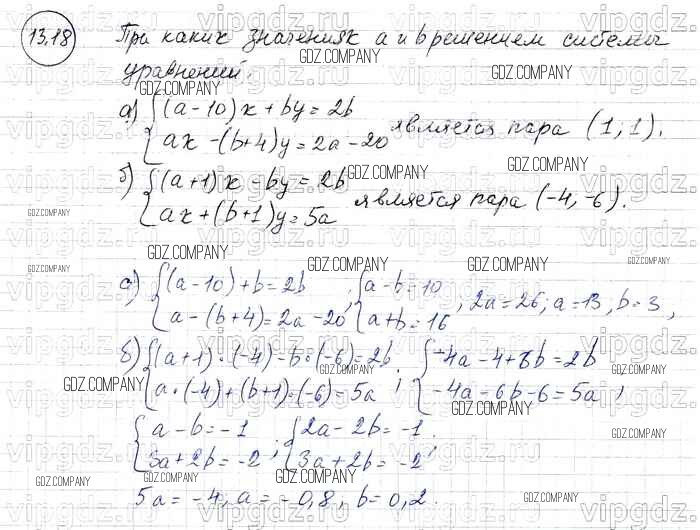 13.18 При каких значениях a и b решением системы
уравнений
а) {(a-10)x + by = 2b
ax - (b+4)y = 2a - 20 является пара (1; 1).
б) {(a+1)x - by = 2b
ax + (b+1)y = 5a является пара (-4, -6).
а) {(a-10) + b = 2b ; {a - b = 10
a - (b+4) = 2a - 20 ; {a + b = 16 ; 2a = 26; a = 13; b = 3,
б) {(a+1)·(-4) - b·(-6) = 2b ; {-4a - 4 + 6b = 2b
a·(-4) + (b+1)·(-6) = 5a ; {-4a - 6b - 6 = 5a ;
{a - b = -1 ; {2a - 2b = -1.
3a + 2b = -2 ; {3a + 2b = -2 ;
5a = -4, a = -0,8, b = 0,2.
GDZ.COMPANY
vipgdz.com